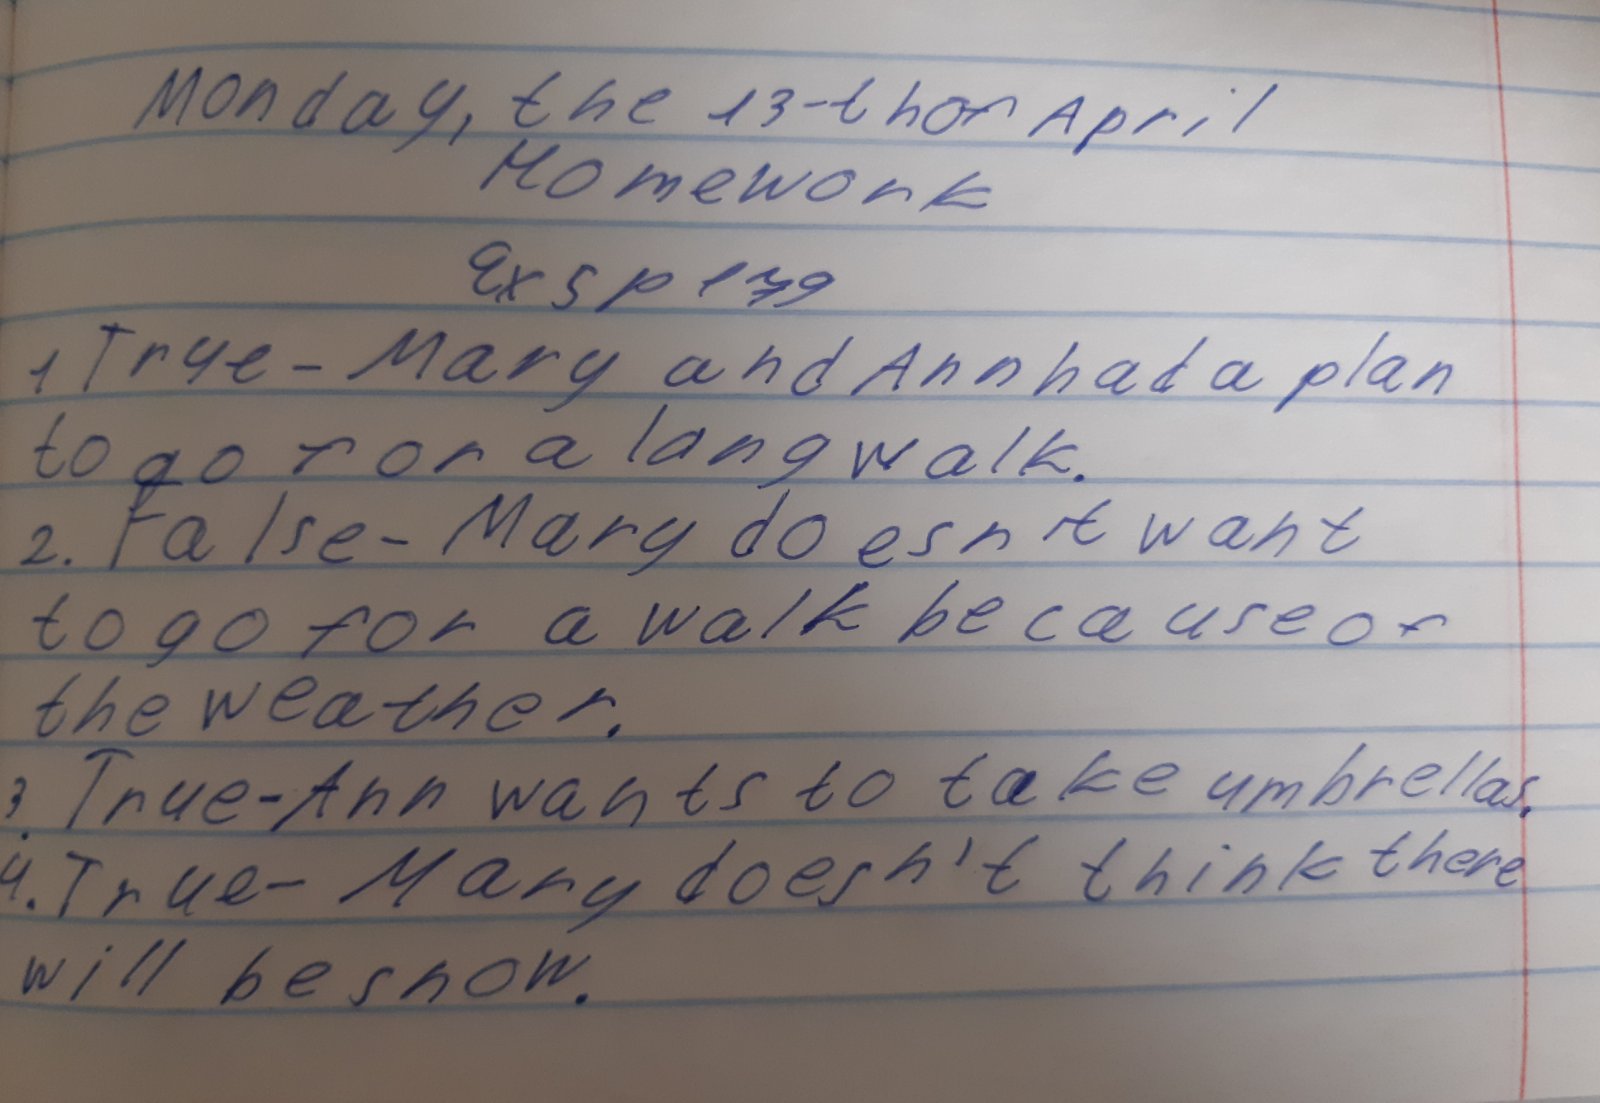 Monday, the 13-th of April
Homework
Ex 5 p 179
1 True - Mary and Ann had a plan
to go for a long walk.
2. False - Mary doesn't want
to go for a walk because of
the weather.
3. True - Ann wants to take umbrellas.
4. True - Mary doesn't think there
will be snow.